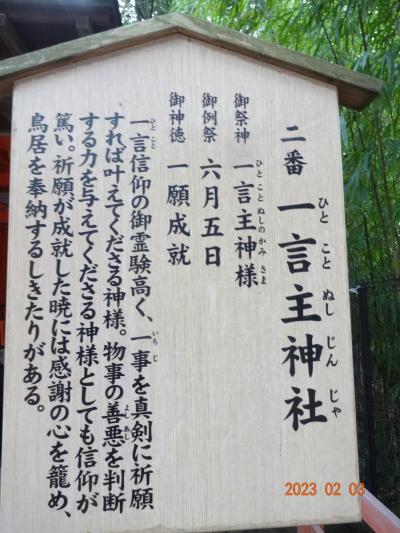 二番 一言主神社
ひとことぬしじんじゃ
御祭神 一言主神様
ひとことぬしのかみさま
御例祭 六月五日
御神徳 一願成就
一言信仰の御霊験高く、一事を真剣に祈願
ひとこと
いちじ
すれば叶えてくださる神様。物事の善悪を判断
よしあし
する力を与えてくださる神様としても信仰が
篤い。祈願が成就した暁には感謝の心を籠め、
鳥居を奉納するしきたりがある。
2023 02 03